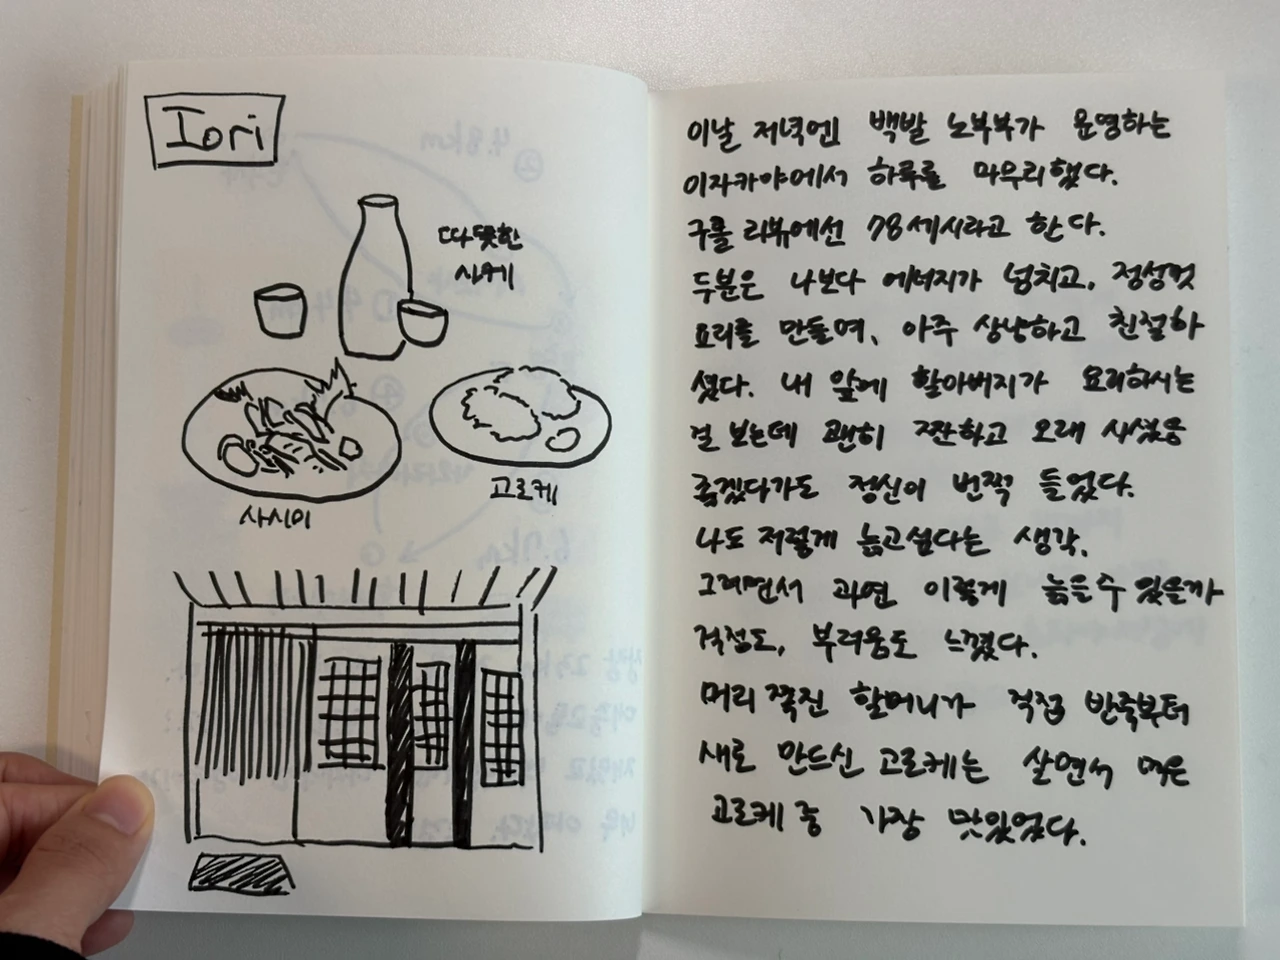 Iori
따뜻한
사케
사시미
고로케
이날 저녁엔 백발 노부부가 운영하는
이자카야에서 하루를 마무리했다.
구글 리뷰에선 78세시라고 한다.
두분은 나보다 에너지가 넘치고, 정성껏
요리를 만들며, 아주 상냥하고 친절하
셨다. 내 앞에 할아버지가 요리하시는
걸 보는데 괜히 짠하고 오래 사셨음
좋겠다가도 정신이 번쩍 들었다.
나도 저렇게 늙고싶다는 생각.
그러면서 과연 이렇게 늙을수 있을까
걱정도, 부러움도 느꼈다.
머리 쪽진 할머니가 직접 반죽부터
새로 만드신 고로케는 살면서 먹은
고로케 중 가장 맛있었다.